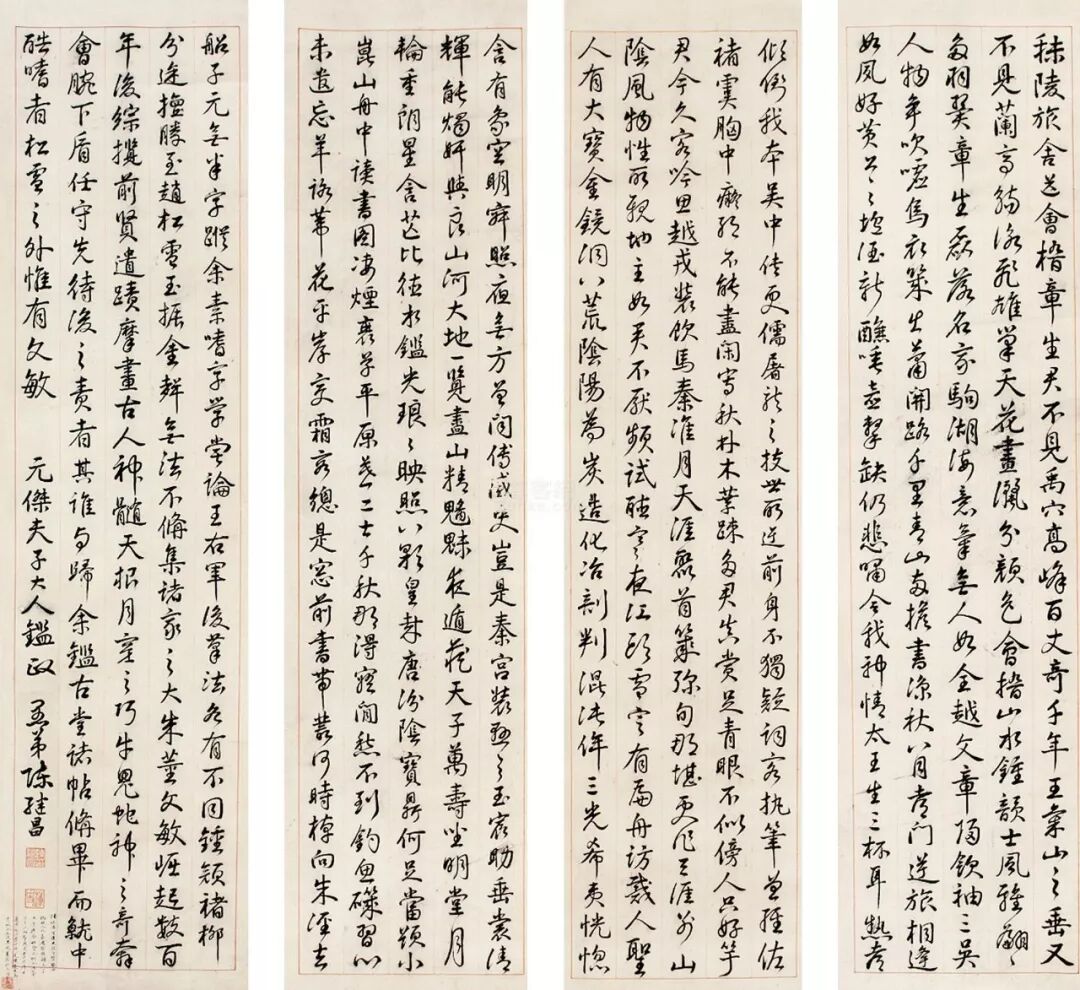 秣陵旅舍送會稽章生君不見禹穴高峰百丈奇千年王氣山之垂又
不見蘭亭觴詠飛雄筆天花畫灑分顏色會稽山水鍾韻士風雅翩翩
多羽翼章生磊落名家駒湖海意氣無人如全越文章歸領袖三吳
人物爭吹噓馬衣策出蕭關路千里青山擔書涼秋八月青門逆旅相逢
如夙好黃公之壚酒新唾壺擊缺仍悲嘯令我神情太王生三杯耳熱齊
傾倒我本吳中佳吏儒屠龍之技世所逆前身不獨疑詞客執筆曾經佐
褚虞胸中不能盡闲寫秋朴木葉疎多君真賞足青眼不似傍人只好竽
君今久客吟思越戎裝飲馬秦淮月天涯聚首幾弥旬那堪更作天涯别山
陰風物性所親地主如君不厭頻試聽寒夜江頭雪定有扁舟訪戴人聖
人有大寶金鏡洞八荒陰陽為炭造化冶剖判混沌侔三光希夷恍惚
含有象空明寂照夜無方曾聞傳史豈是秦宮裝懸之玉宸助垂裳清
輝能燭妍與良山河大地一覽盡山精魑魅夜遁藏天子萬壽坐明堂月
輪重朗星含芒比德水鑑光琅々映照八彩皇封唐汾陰寶鼎何足當題小
崑山舟中讀書圖淒煙衰草平原道二士千秋那得窺閒愁不到釣魚磯習心
未遣忘羊詠第花平岸交霜客總是窓前書帶叢何時棹向朱涇去
船子元無半字蹤余素嗜字學嘗論王右軍後筆法各有不同鍾穎褚柳
分途擅勝至趙松雪玉振金聲無法不備集諸家之大朱董文敏崛起數百
年後綜攬前賢遺蹟摩畫古人神髓天根月窟之巧牛鬼蛇神之奇奔
會腕下肩任守先待後之責者其誰與歸余鑑古堂諸帖備畢而中
酷嗜者松雪之外惟有文敏 元傑夫子大人鑑政 愚弟陳繼昌